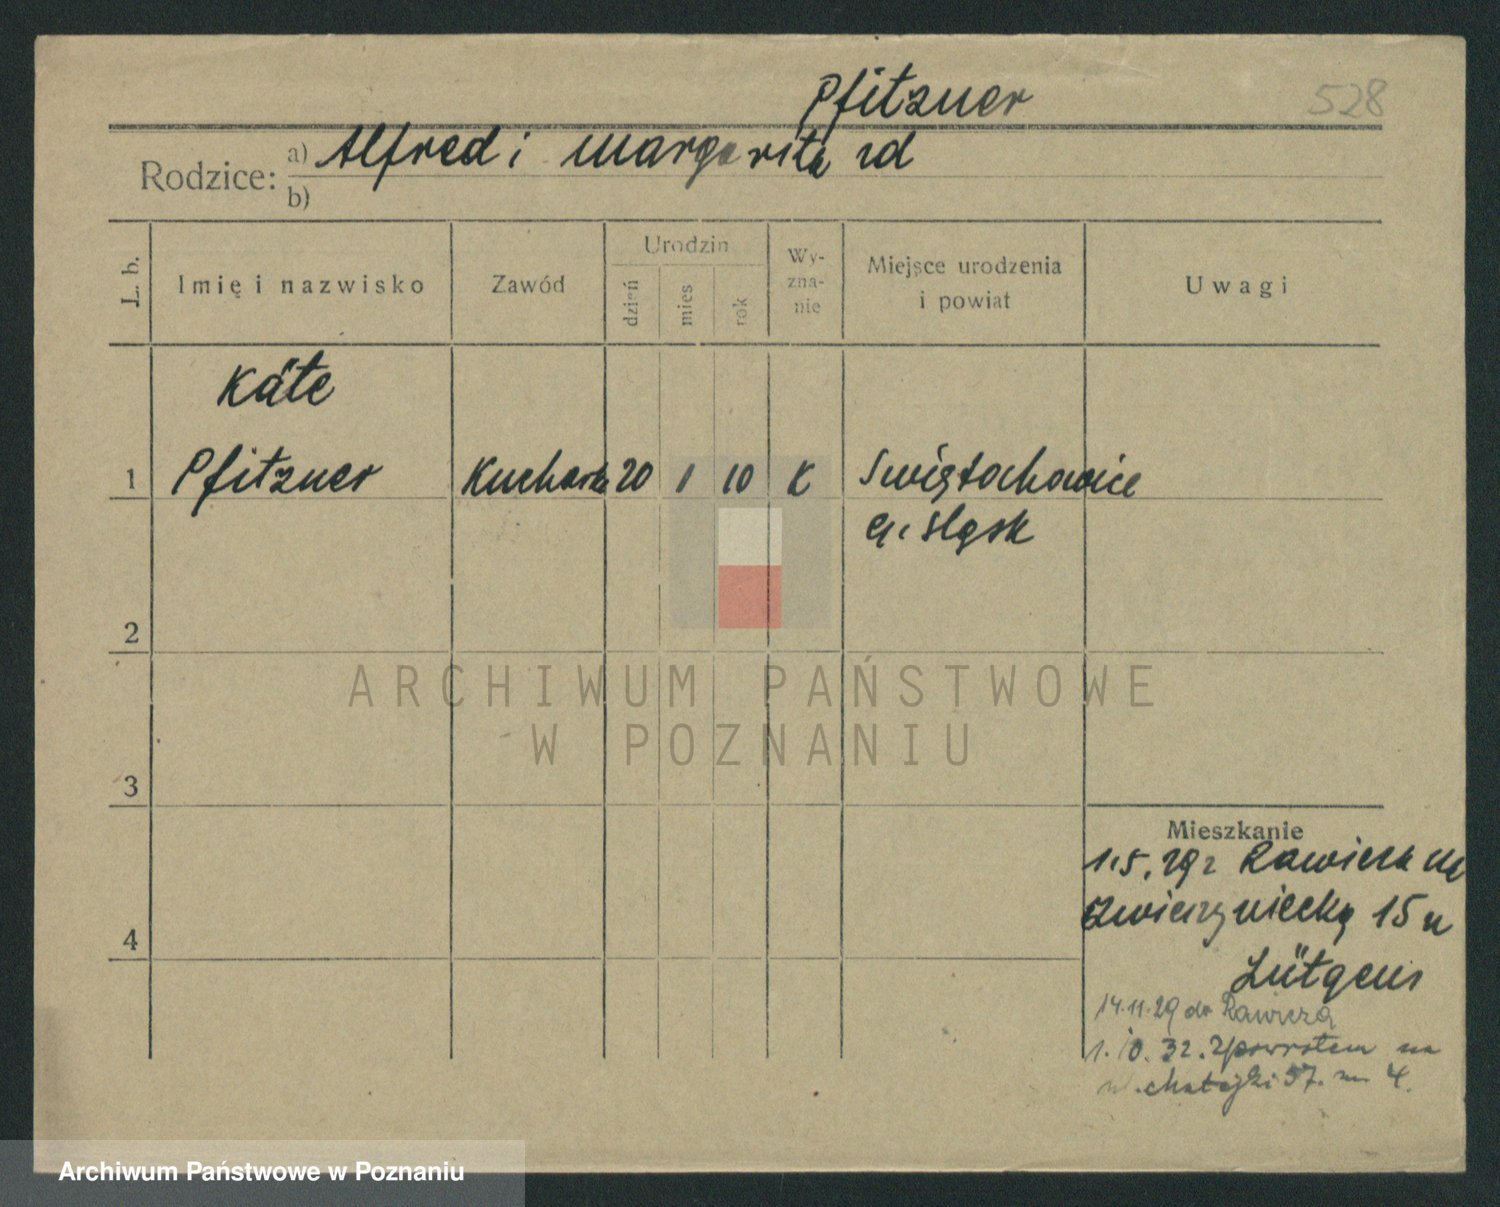 Pfitzner
528
Rodzice: a) Alfred i Margarita zd
b)
L. b.
Imię i nazwisko
Zawód
Urodzin
dzień
mies
rok
Wy-
zna-
nie
Miejsce urodzenia
i powiat
Uwagi
Käte
1 Pfitzner Kucharka 20 1 10 K Swiętochowice
G. Sląsk
2
3
4
Mieszkanie
1.5.29 z Rawicza na
Zwierzyniecką 15 u
Lütgens
14.11.29 do Rawicza
1.10.32. zpowrotem na
57. m 4.
ARCHIWUM PAŃSTWOWE
W POZNANIU
Archiwum Państwowe w Poznaniu